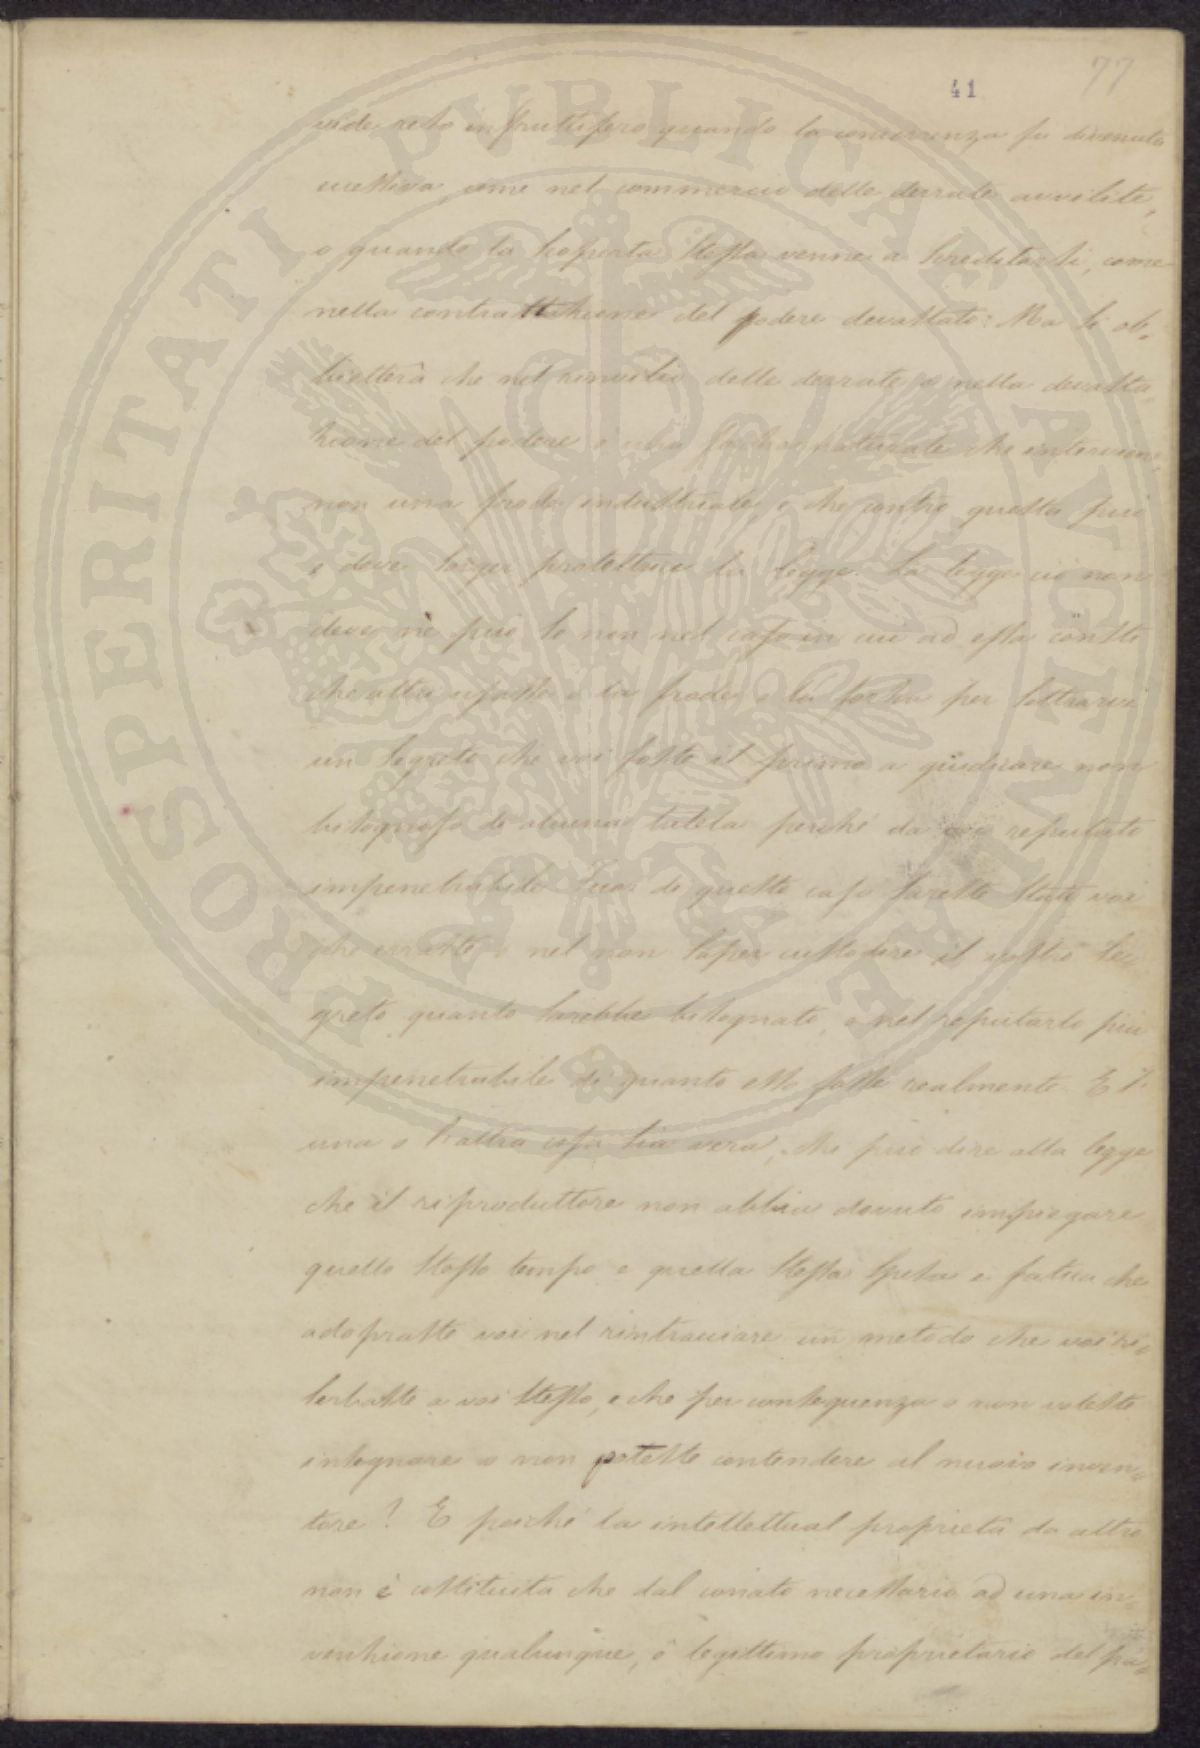 77
41
vide reso infruttifero quando la concorrenza fu divenuta
eccessiva, come nel commercio delle derrate avvilite,
o quando la scoperta stessa venne a screditarsi, come
nella contrattazione del podere devastato: Ma si ob-
bietterà che nel rinvilio delle derrate, e nella devasta
zione del podere è una forza naturale che interviene,
non una frode industriale, e che contro questa può
e deve sorger protettrice la legge. La legge ciò non
deve nè può se non nel caso in cui ad essa consti
che altri usasse o la frode, o la forza per sottrarvi
un segreto che voi foste il primo a giudicare non
bisognoso di alcuna tutela perché da voi reputato
impenetrabile. Fuor di questo caso sareste stato voi
che erraste o nel non saper custodire il vostro se-
greto quanto sarebbe bisognato, o nel reputarlo più
impenetrabile di quanto esso fosse realmente. E l'
una o l'altra cosa sia vera, chi può dire alla legge
che il riproduttore non abbia dovuto impiegare
quello stesso tempo e quella stessa spesa e fatica che
adopraste voi nel rintracciare un metodo che voi ri-
serbaste a voi stesso, e che per conseguenza o non voleste
insegnare o non poteste contendere al nuovo inven-
tore? E poichè la intellettual proprietà da altro
non è costituita che dal conato necessario ad una in-
venzione qualunque, è legittimo proprietario del pa-
PROSPERITATI PVBLICAE AVGENDAE